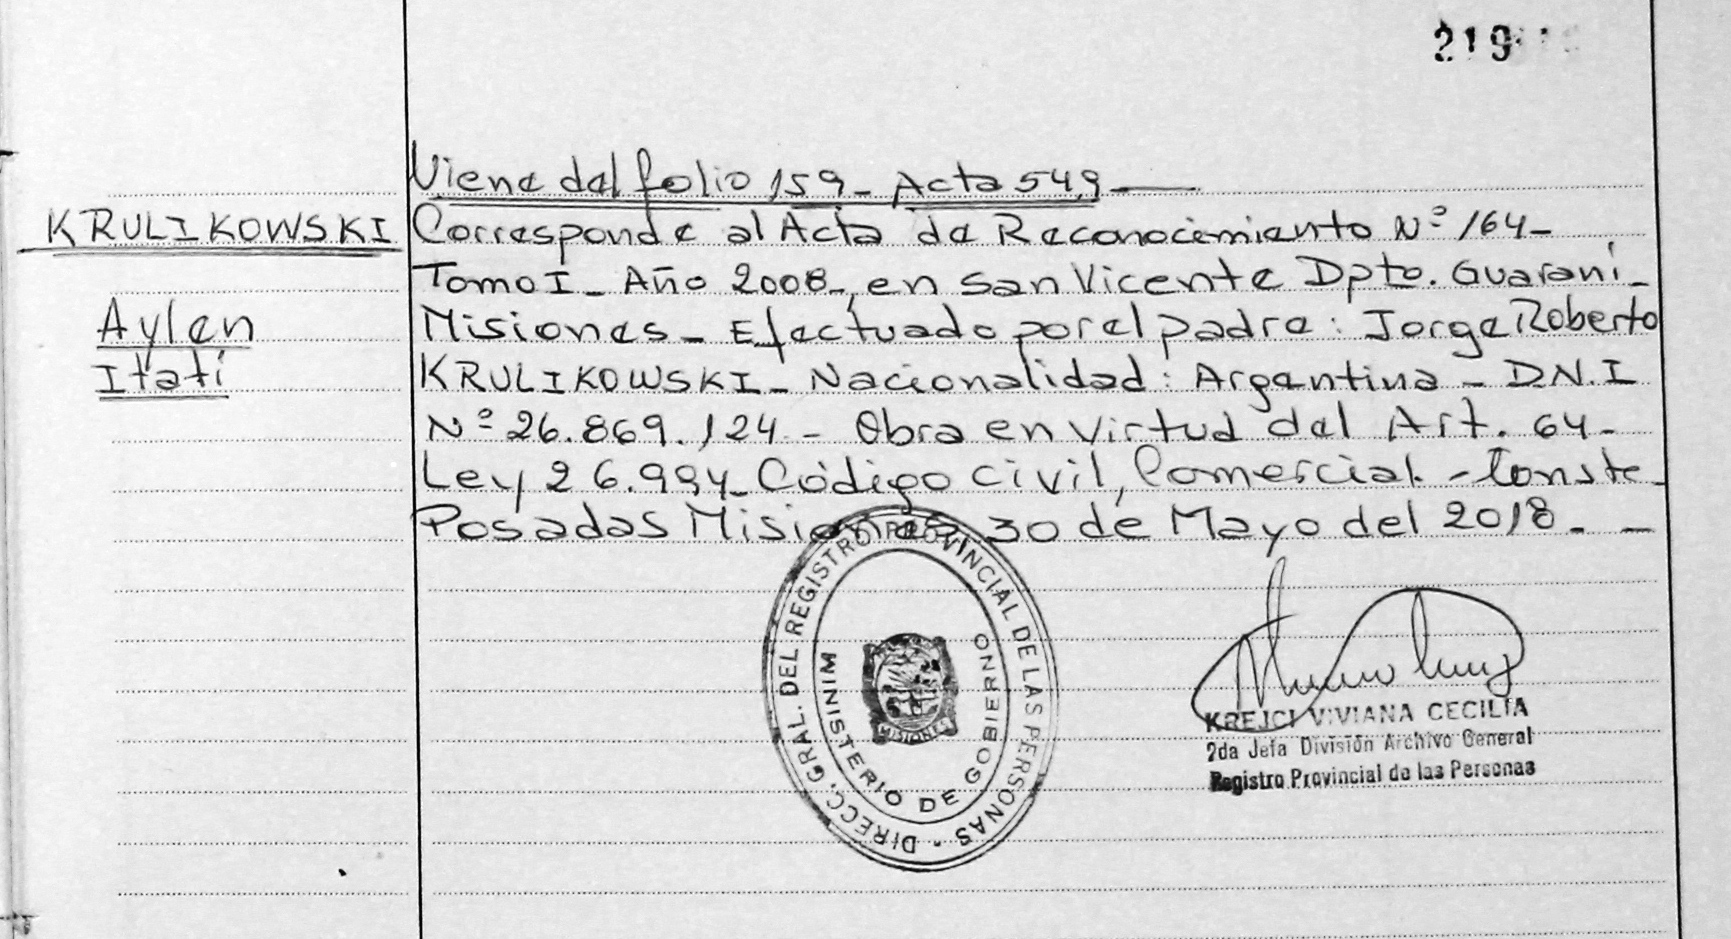 219
Viene del folio 159- Acta 549
KRULIKOWSKI
Corresponde al Acta de Reconocimiento Nº 164-
Tomo I- Año 2008-, en San Vicente Dpto. Guaraní-
Aylen
Misiones- Efectuado por el padre: Jorge Roberto
Itatí
KRULIKOWSKI- Nacionalidad: Argentina - D.N.I
Nº 26.869.124.- Obra en Virtud del Art. 64-
Ley 26.994- Código Civil, Comercial.- Conste-
Posadas Misiones, 30 de Mayo del 2018.- -
DIRECC. GRAL. DEL REGISTRO PROVINCIAL DE LAS PERSONAS -
MINISTERIO DE GOBIERNO
MISIONES
KREJCI VIVIANA CECILIA
2da Jefa División Archivo General
Registro Provincial de las Personas